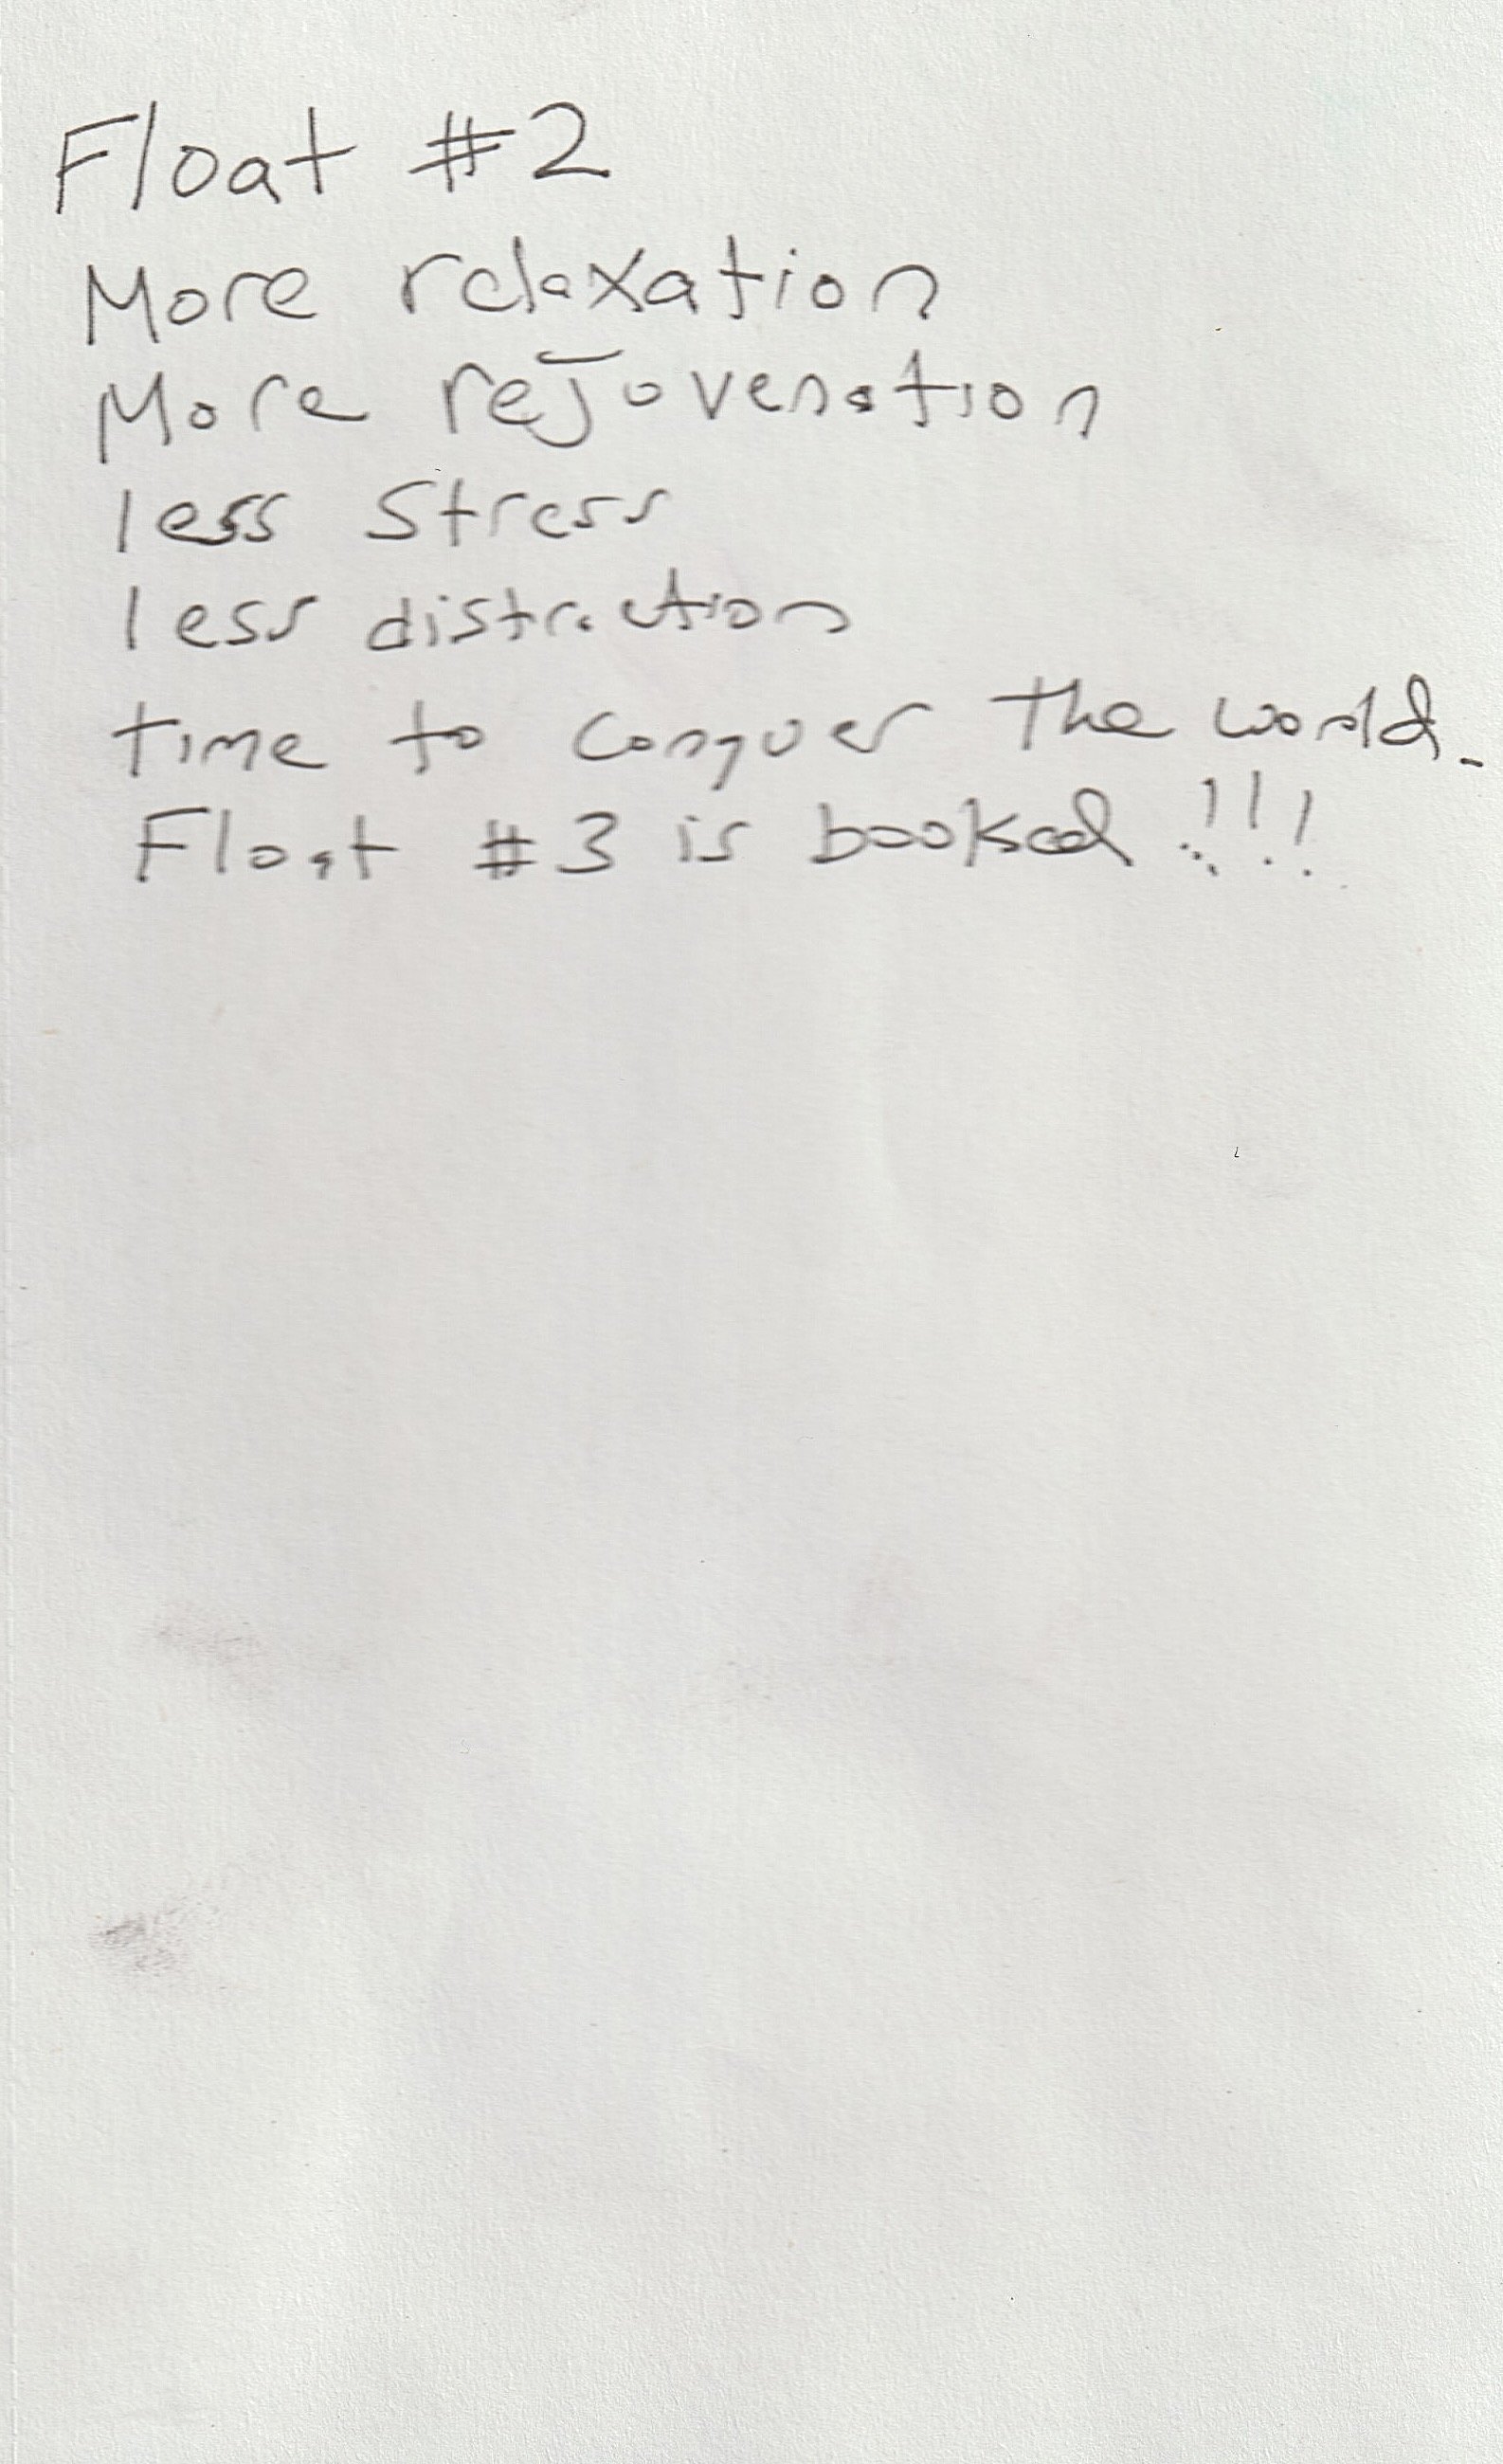 Float #2
More relaxation
More rejuvenation
less stress
less distraction
time to conquer the world.
Float #3 is booked!!!